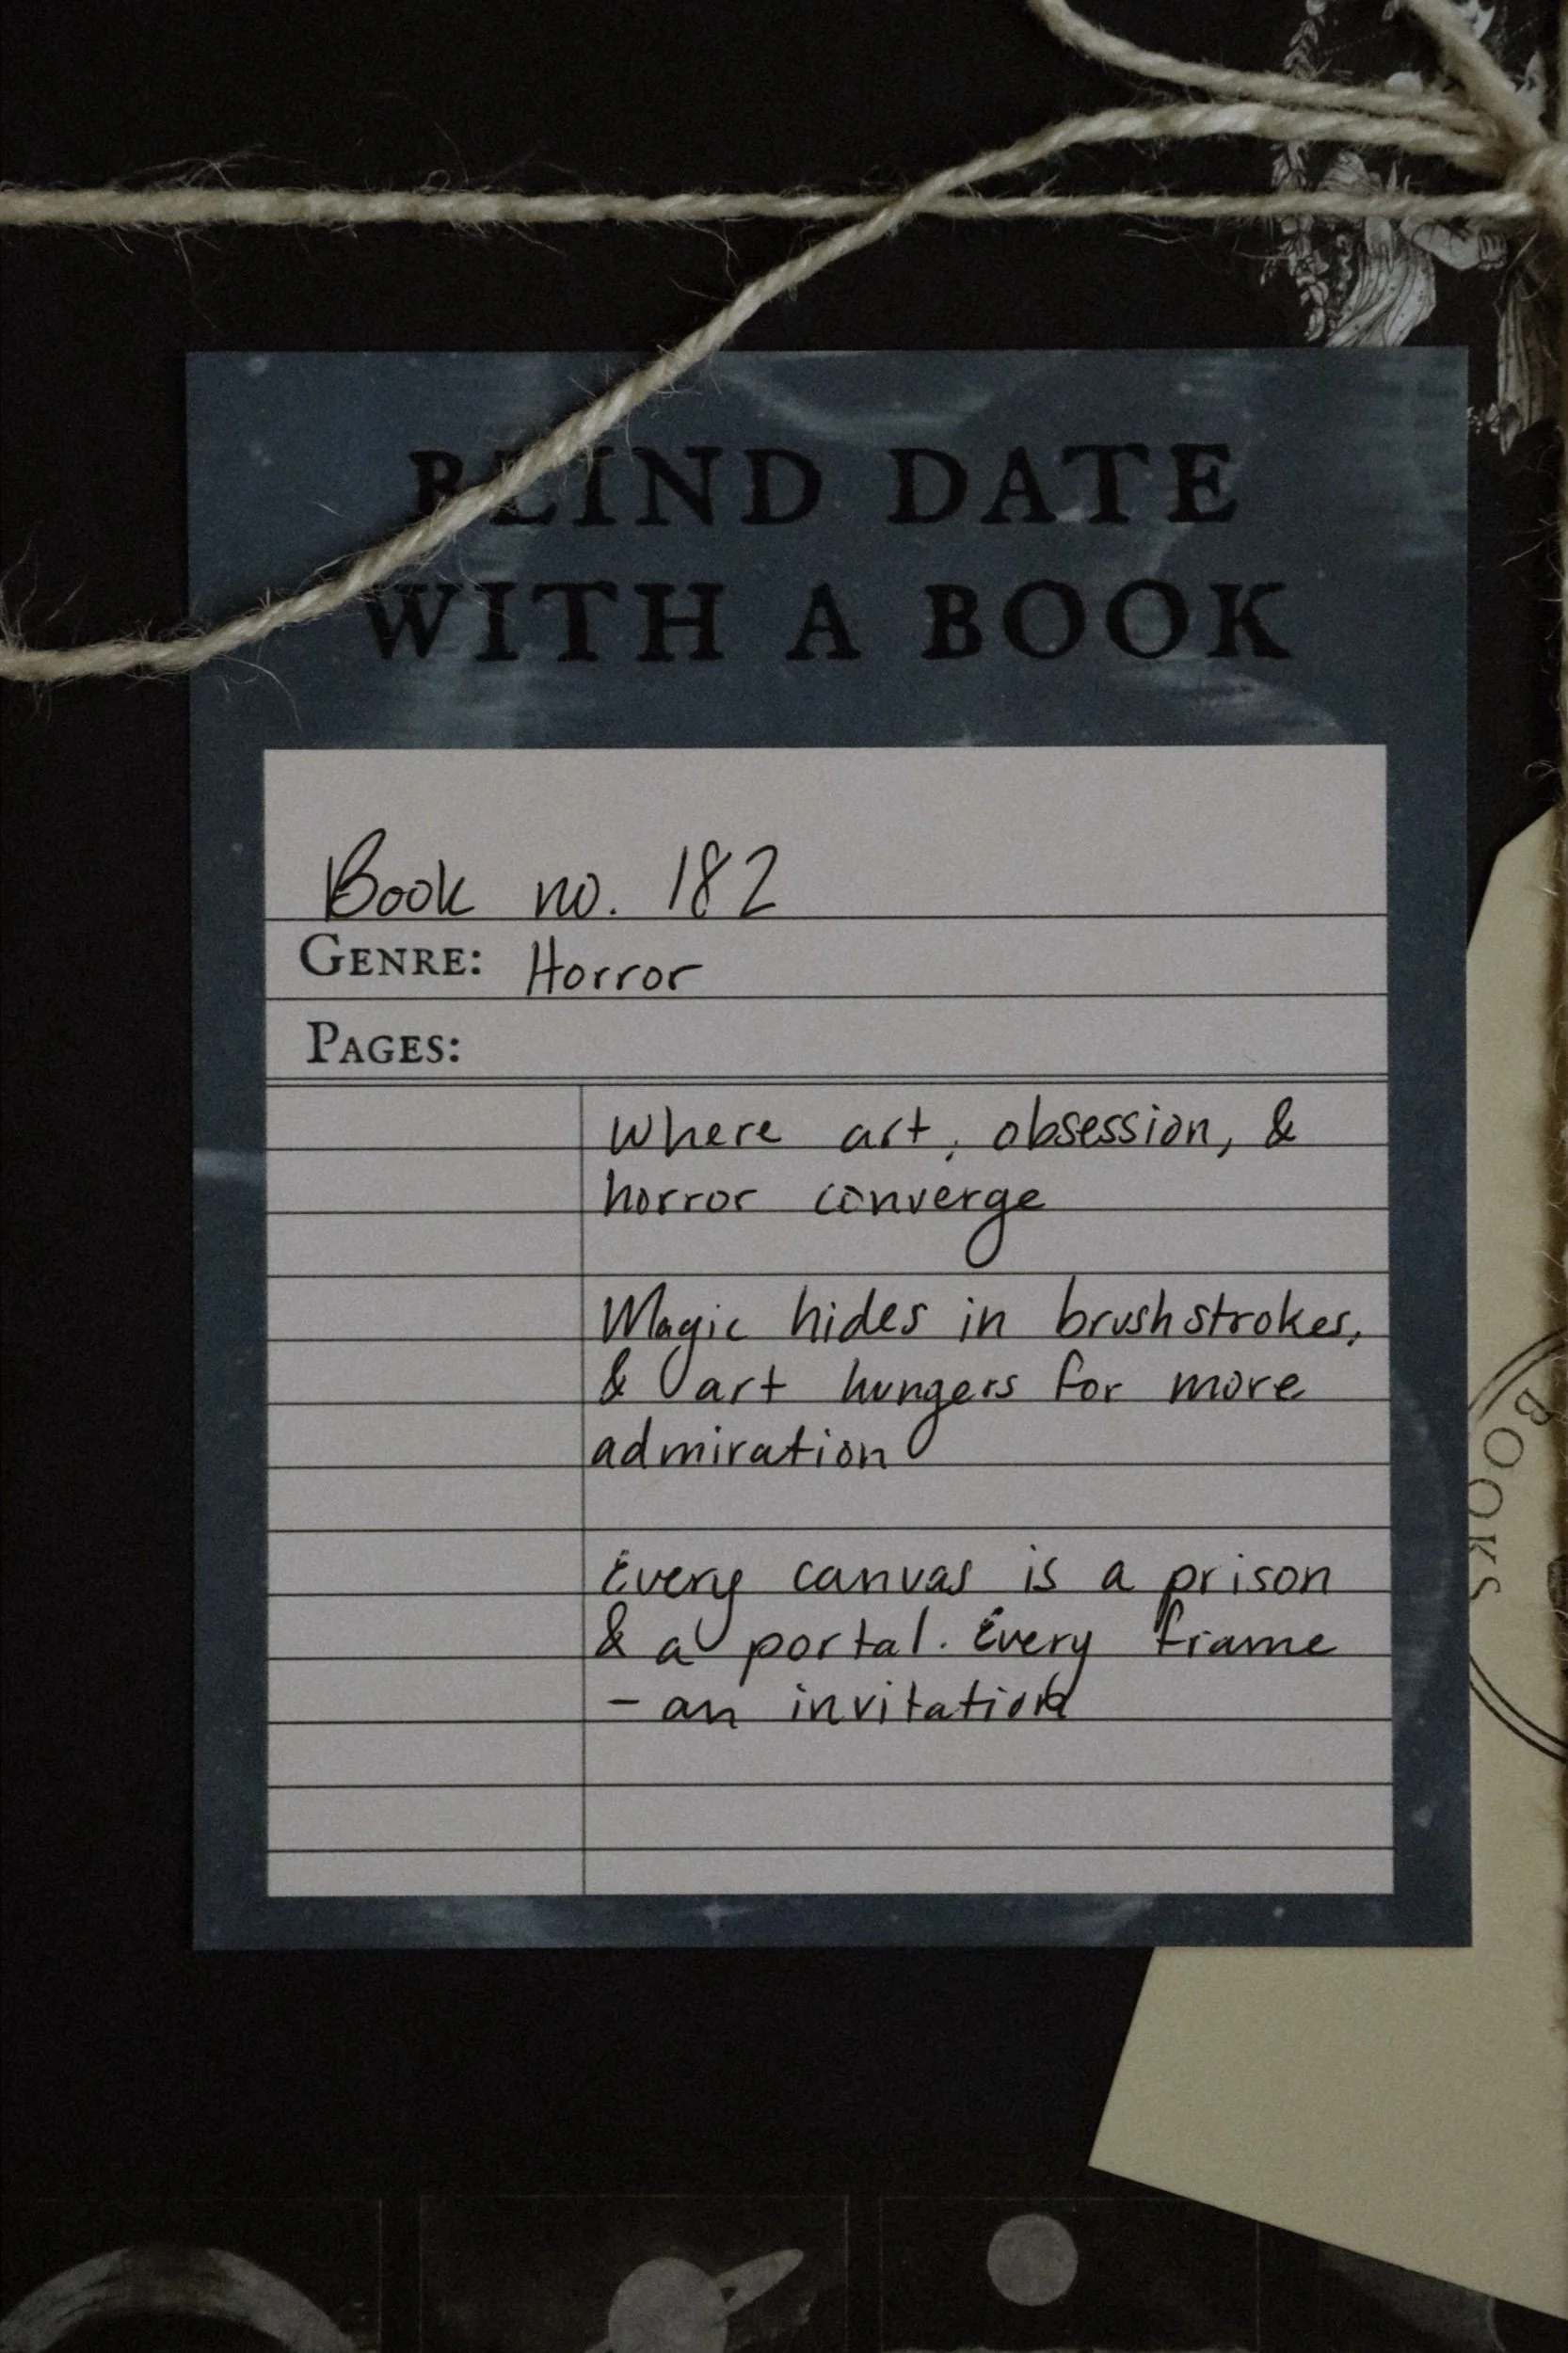 BLIND DATE
WITH A BOOK
Book no. 182
GENRE: Horror
PAGES:
Where art, obsession, &
horror converge
Magic hides in brushstrokes,
& art hungers for more
admiration
Every canvas is a prison
& a portal. Every frame
- an invitation
BOOKS